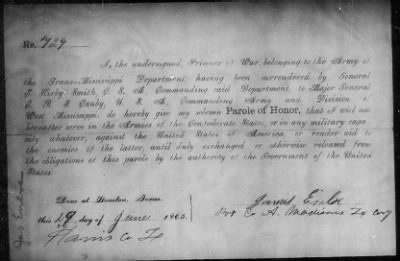 No. 729
I, the undersigned, Prisoner of War, belonging to the Army of
the Trans-Mississippi Department, having been surrendered by General
E. Kirby Smith, C. S. A., Commanding said Department, to Major General
E. R. S. Canby, U. S. A., Commanding Army and Division of
West Mississippi, do hereby give my solemn Parole of Honor, that I will not
hereafter serve in the Armies of the Confederate States, or in any military capa-
city whatever, against the United States of America, or render aid to
the enemies of the latter, until duly exchanged, or otherwise released from
the obligations of this parole by the authority of the Government of the United
States.
Done at Houston, Texas
this day of June 1865.
Harris Co
Pvt Co A.